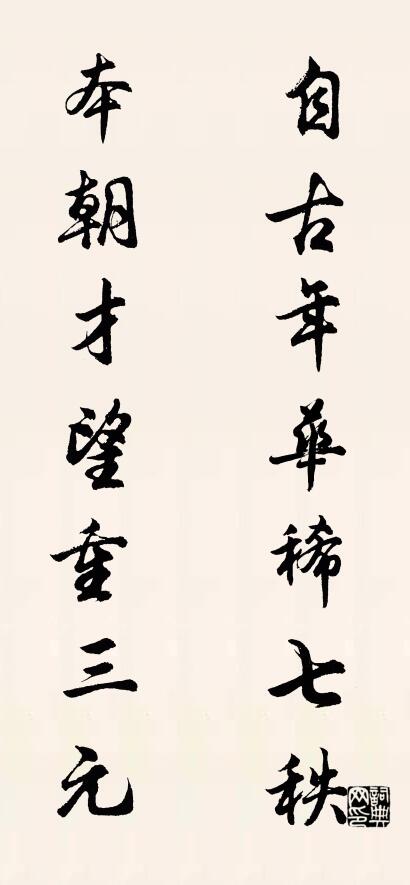 自古年华稀七秩
本朝才望重三元
詞典网印